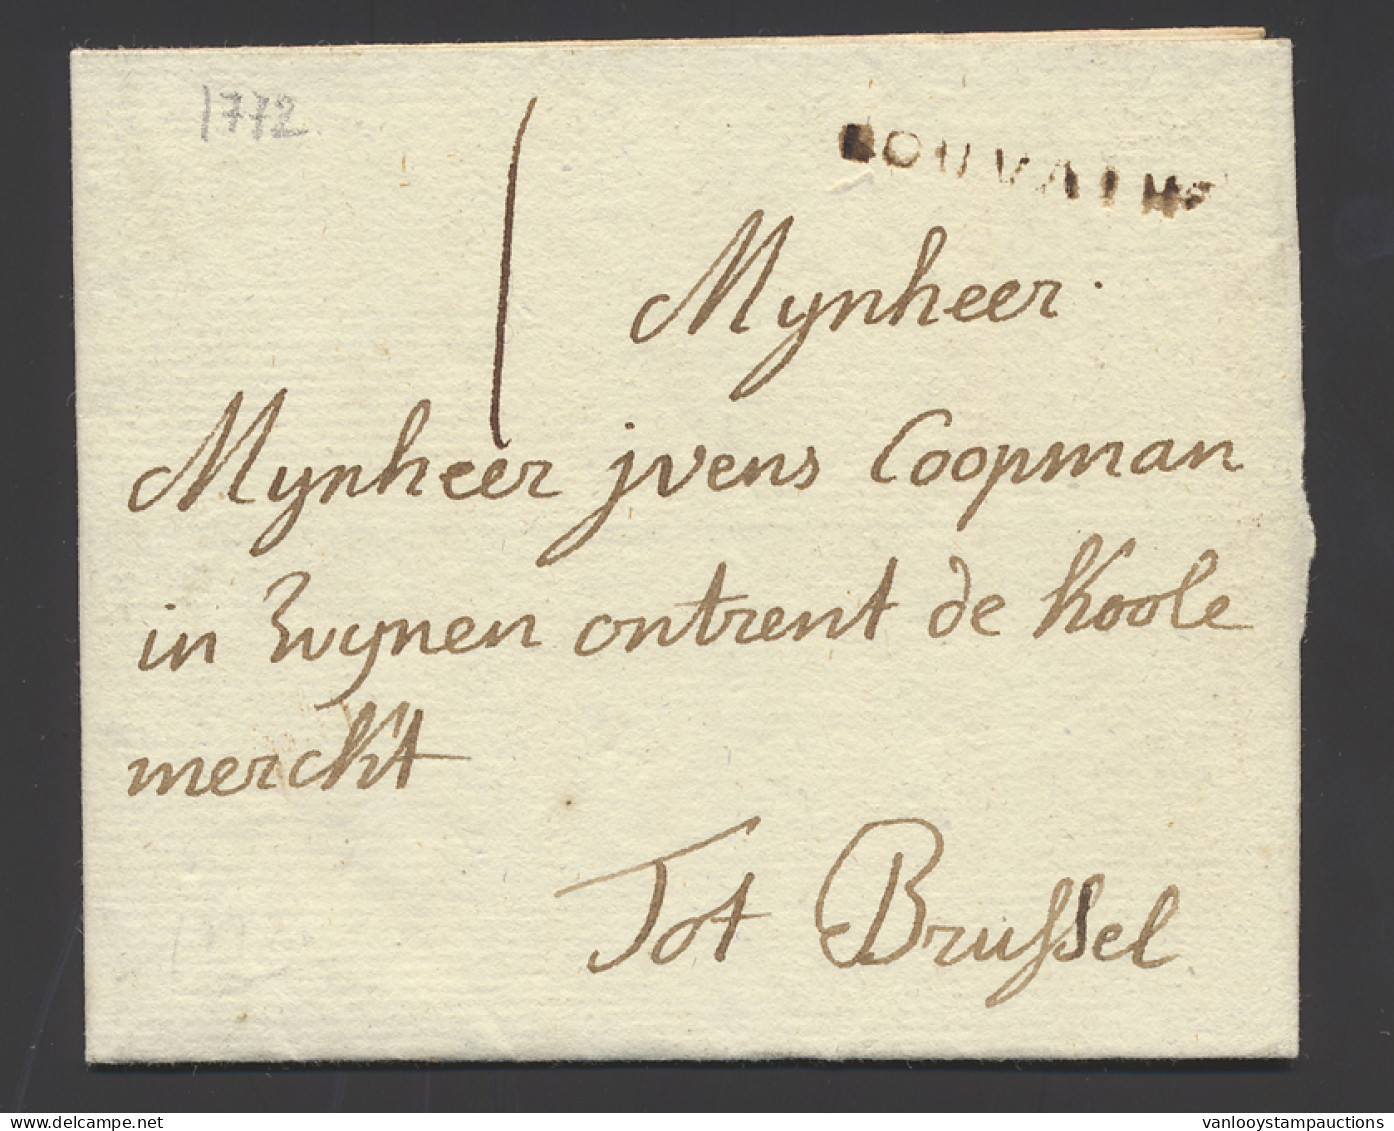 1772
LOUVAIN
Mynheer
Mynheer jvens Coopman
in wynen ontrent de Koole
merckt
Tot Brussel
delcampe.net
vanlooystampauctions